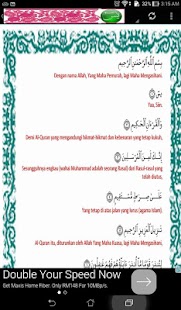 3:15 AM
بِسْمِ اللَّهِ الرَّحْمَنِ الرَّحِيمِ
Dengan nama Allah, Yang Maha Pemurah, lagi Maha Mengasihani.
يس
Yaa, Siin.
وَالْقُرْآنِ الْحَكِيمِ
Demi Al-Quran yang mengandungi hikmat-hikmat dan kebenaran yang tetap kukuh,
إِنَّكَ لَمِنَ الْمُرْسَلِينَ
Sesungguhnya engkau (wahai Muhammad adalah seorang Rasul) dari Rasul-rasul yang
telah diutus,
عَلَى صِرَاطٍ مُسْتَقِيمٍ
Yang tetap di atas jalan yang lurus (agama Islam).
تَنْزِيلَ الْعَزِيزِ الرَّحِيمِ
Al Quran itu, diturunkan oleh Allah Yang Maha Kuasa, lagi Maha Mengasihani,
Double Your Speed Now
Get Maxis Home Fiber. Only RM148 For 10MBp/s.